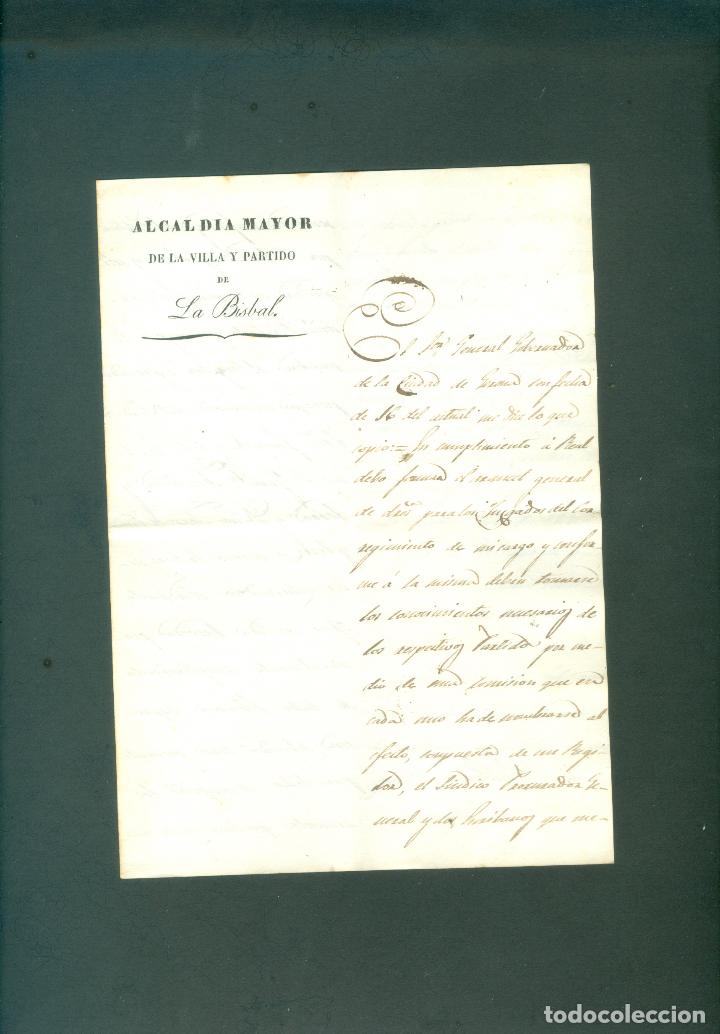 ALCALDIA MAYOR
DE LA VILLA Y PARTIDO
DE
La Bisbal.
El Sor. General Gobernador
de la Ciudad de Gerona con fecha
de 16 del actual me dice lo que
copio:= En cumplimiento á Real
debo formar el arancel general
de dros. para los Juzgados del cor
regimiento de mi cargo, y confor
me á la misma deben tomarse
los conocimientos necesarios de
los respectivos Partidos por me-
dio de una comision que en
cada uno ha de nombrarse al
efecto, compuesta de un Regi-
dor, el Sindico Procurador Ge-
neral y dos Escribanos que me-
todocoleccion.net